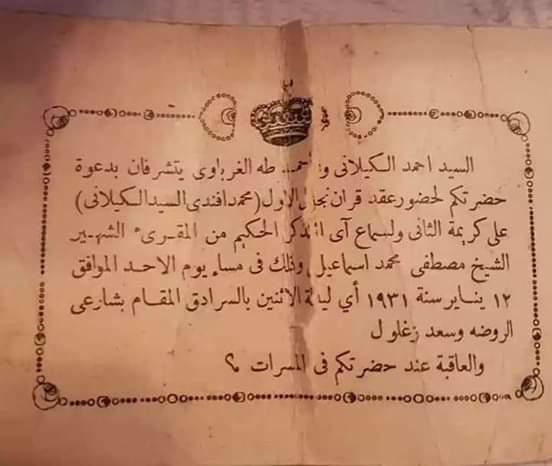 السيد احمد الكيلانى و احمد طه الغرباوى يتشرفان بدعوة
حضرتكم لحضور عقد قران نجل الاول (محمد افندى السيد الكيلانى)
على كريمة الثانى ولسماع آى الذكر الحكيم من المقرىء الشهير
الشيخ مصطفى محمد اسماعيل وذلك فى مساء يوم الاحد الموافق
١٢ يناير سنة ١٩٣١ أي ليلة الاثنين بالسرادق المقام بشارعى
الروضه وسعد زغلول
والعاقبة عند حضرتكم فى المسرات